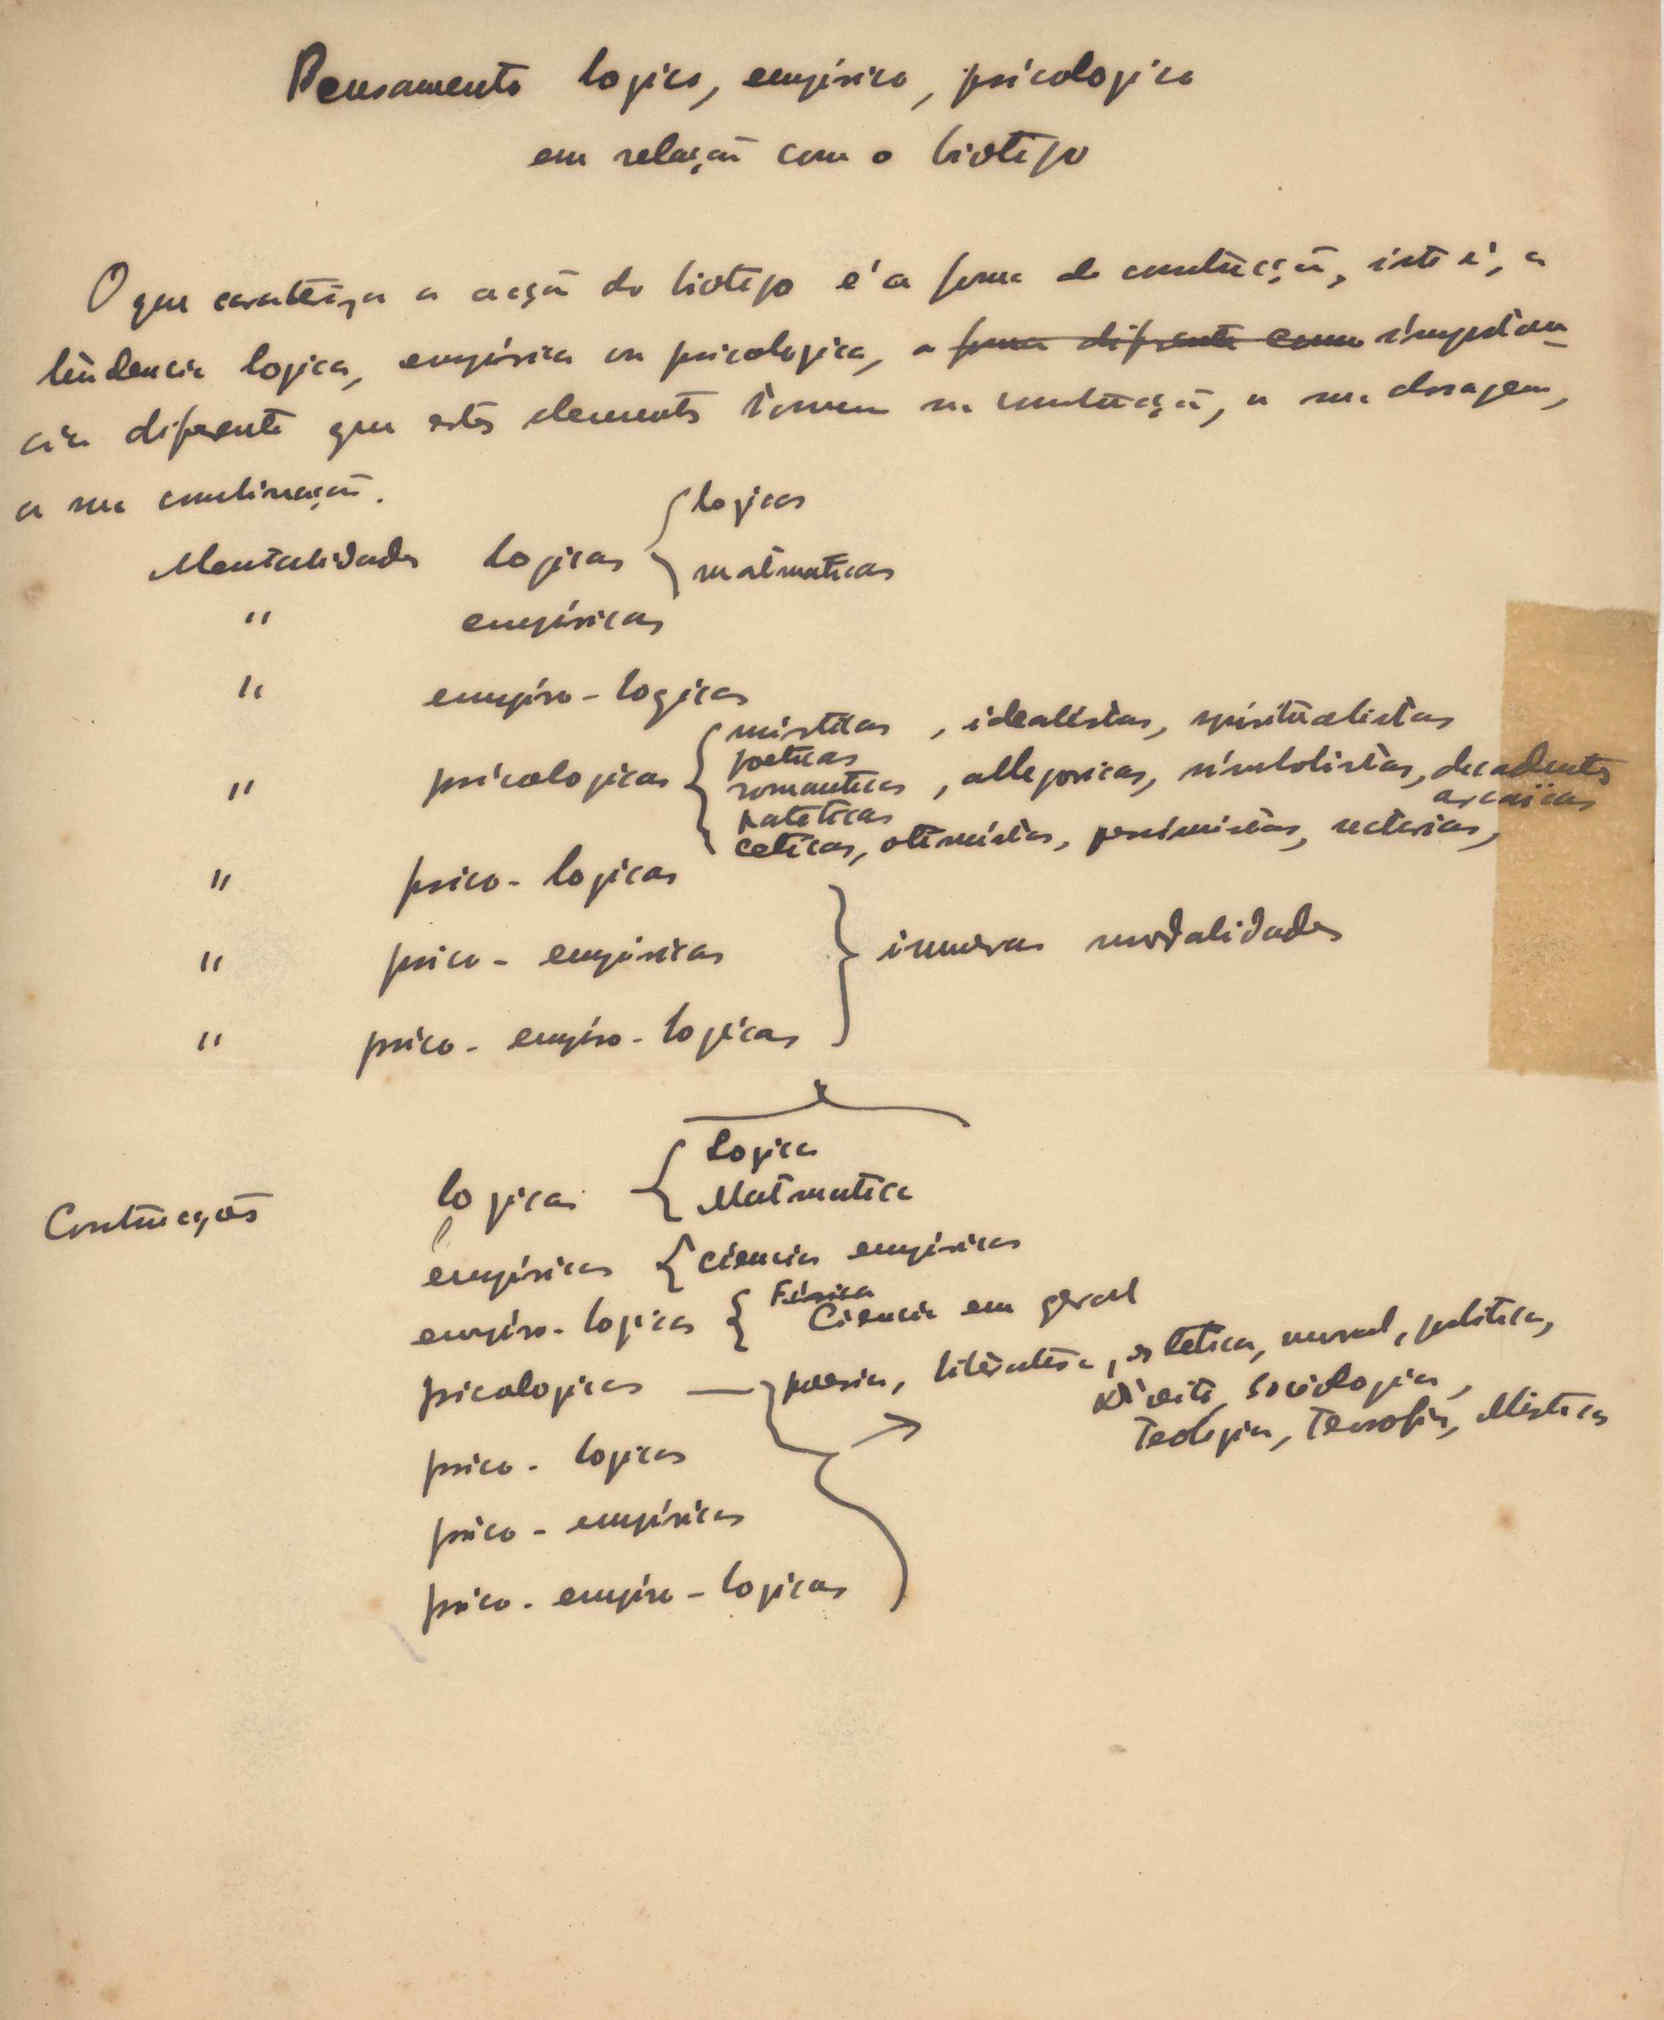 Pensamento logico, empírico, psicologico
em relação com o biotipo
O que carateriza a acção do biotipo é a forma de construcção, isto é, a
tendencia logica, empírica ou psicologica, a forma diferente como importan-
cia diferente que estes elementos tomam na construcção, a sua dosagem,
a sua combinação.
Mentalidades logicas { logicas
matematicas
" empíricas
" empíro-logicas
" psicologicas { místicas, idealistas, espiritualistas
poeticas
romanticas, allegoricas, simbolistas, decadentes
arcaïcas
pateticas
ceticas, otimistas, pessimistas, sectarias,
" psico-logicas
" psico-empíricas } inumeras modalidades
" psico-empíro-logicas
Construcções logicas { Logica
Matematica
empíricas { Ciencias empíricas
empíro-logicas { Física
Ciencia em geral
psicologicas — poesia, literatura, estetica, moral, politica,
Direito, Sociologia,
Teologia, Teosofia, Mistica
psico-logicas
psico-empíricas
psico-empíro-logicas